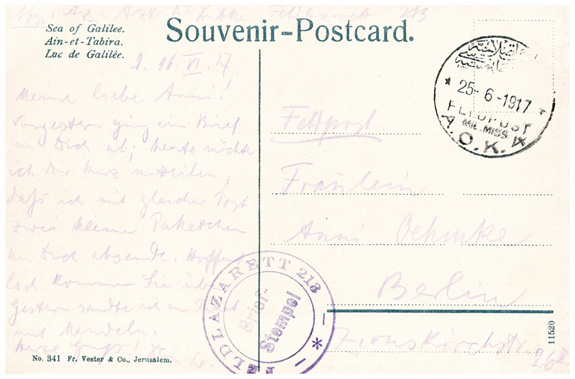 Feldlazarett 213
Souvenir-Postcard.
Sea of Galilee.
Ain-et-Tabira.
Lac de Galilée.
16. VI. 17
Meine liebe Anni!
Vorgestern ging ein Brief
an Dich ab; heute möchte
ich Dir kurz mitteilen,
daß ich mit gleicher Post
zwei kleine Paketchen
an Dich absende. Hoffent
lich kommen sie
Gestern sandte ich
mit Mandeln.
25-6-1917
FELDPOST
MIL. MISS
A.O.K. 4
Feldpost
Fräulein
Anni Oehmke
Berlin
Zionskirchstr. 26
FELDLAZARETT 213
Brief-
Stempel
11520
No. 341 Fr. Vester & Co., Jerusalem.